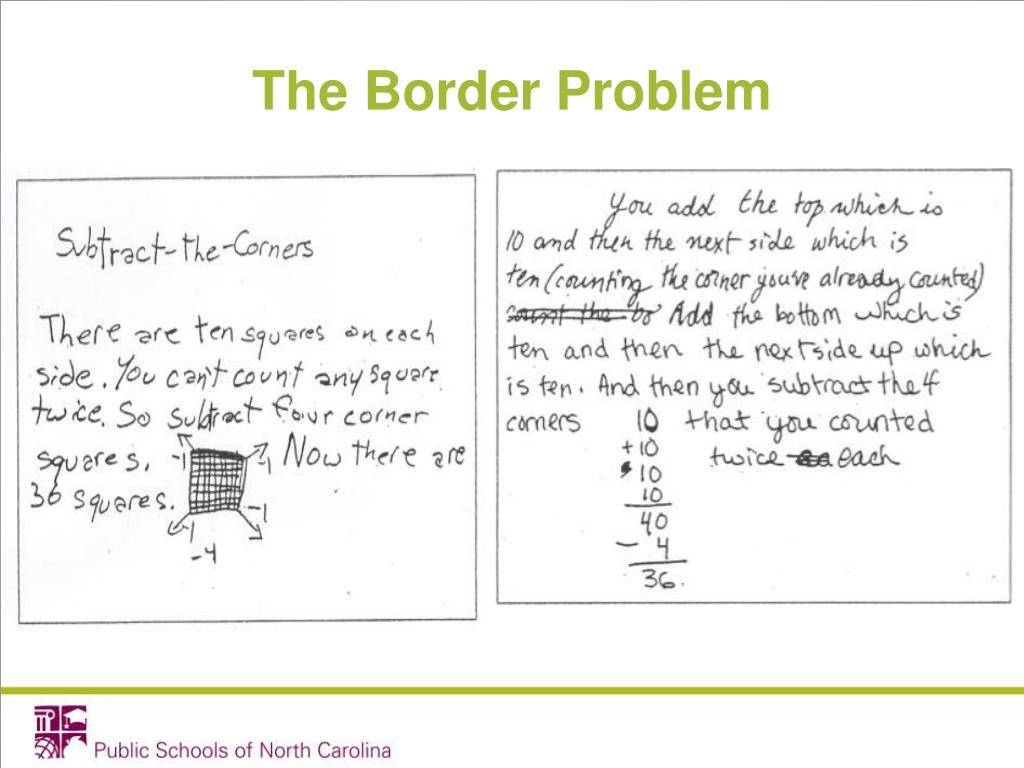 The Border Problem
Subtract-the-Corners
There are ten squares on each
side. You can't count any square
twice. So subtract four corner
squares. -1 -1 Now there are
36 squares. -1
-1
-4
You add the top which is
10 and then the next side which is
ten (counting the corner you've already counted)
count the bo Add the bottom which is
ten and then the next side up which
is ten. And then you subtract the 4
corners 10 that you counted
+10 twice each
10
10
40
- 4
36.
Public Schools of North Carolina